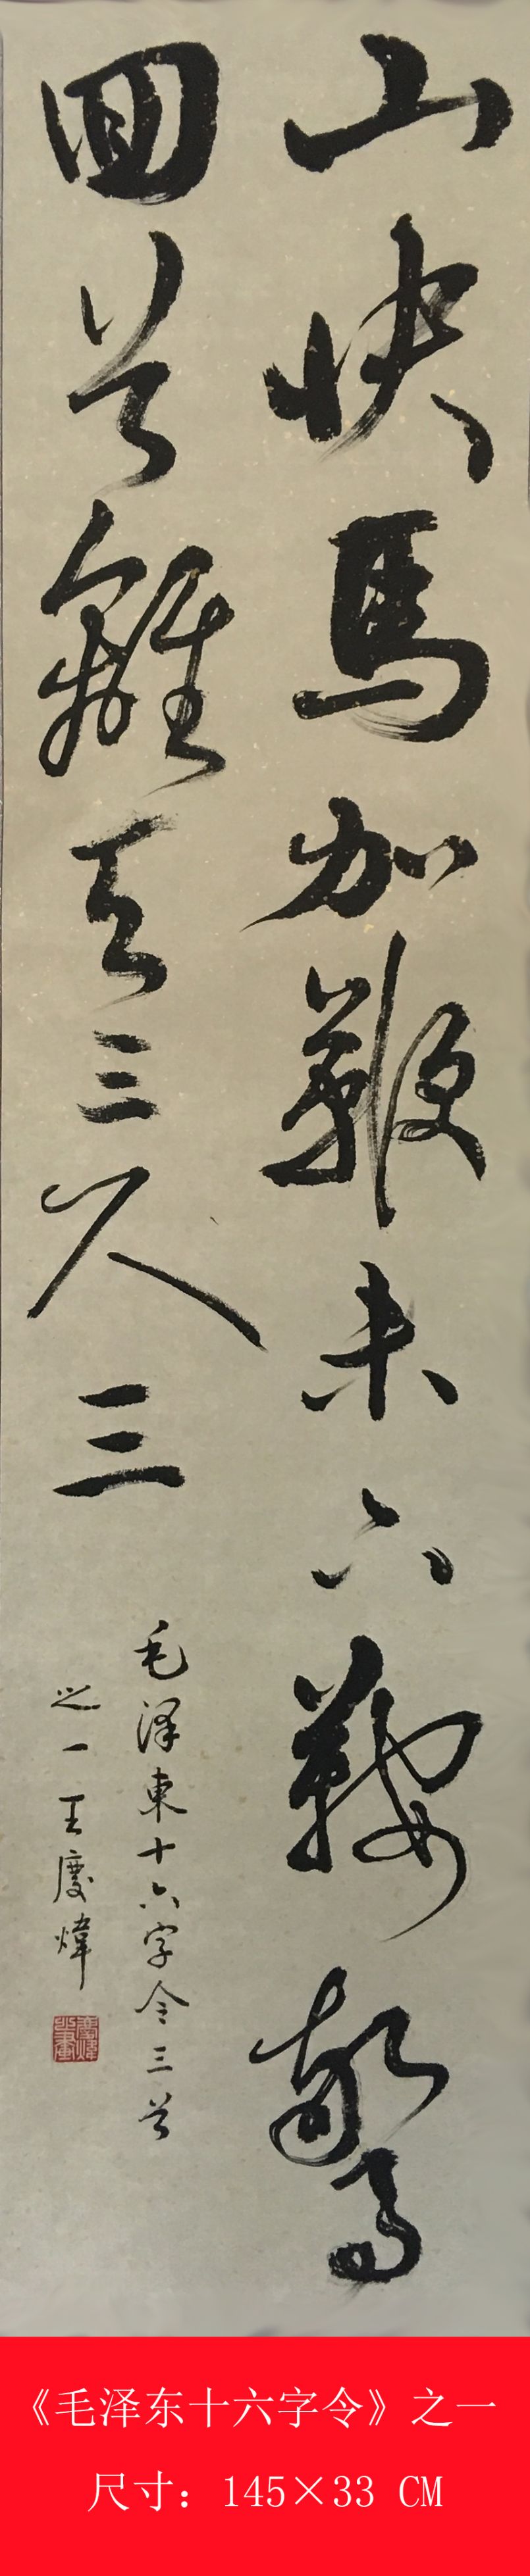 山快馬加鞭未下鞍驚
回首離天三尺三
毛泽東十六字令三首
之一王慶煒
《毛泽东十六字令》之一
尺寸：145×33 CM